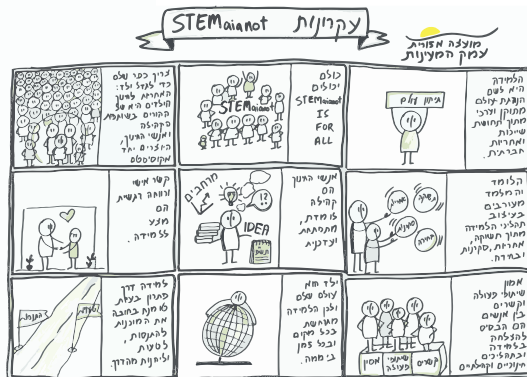 עקרונות STEMaianot
מועצה אזורית
עמק המעיינות
הלמידה
היא לשם
הקניית עולם
מתוקן וערכי
מתוך תחושת
שייכות
ואחריות
חברתית.
תיקון עולם
כולם
יכולים
STEMaianot
IS
FOR
ALL
STEMaianot
צריך כפר שלם
כדי לגדל ילד:
האחריות לחינוך
הילדים היא של
ההורים בשותפות
הקהילה
ואנשי החינוך,
היוצרים יחד
אקוסיסטם
הלומד
והמלמד
מעורבים
בעיצוב
תהליכי הלמידה
מתוך תשוקה,
אחריות, סקרנות
ובחירה.
אחריות
תשוקה
סקרנות
בחירה
אנשי החינוך
הם
קהילה
לומדת,
מתפתחת
ועדכנית
מרחבים
IDEA
קשר אישי
ורווחה רגשית
הם
מצע
ללמידה.
אמון
שיתופי פעולה
וקשרים
בין אנשים
הם הבסיס
להצלחה
בלמידה
ובתהליכים
חינוכיים וקהילתיים
קשרים
שיתופי
פעולה
אמון
ילד הוא
עולם שלם
ולכן הלמידה
מתרחשת
בכל מקום
ובכל זמן
ביממה.
למידה דרך
פתרון בעיות
טומנת בחובה
את המוכנות
להתנסות,
לטעות
וליהנות מהדרך.